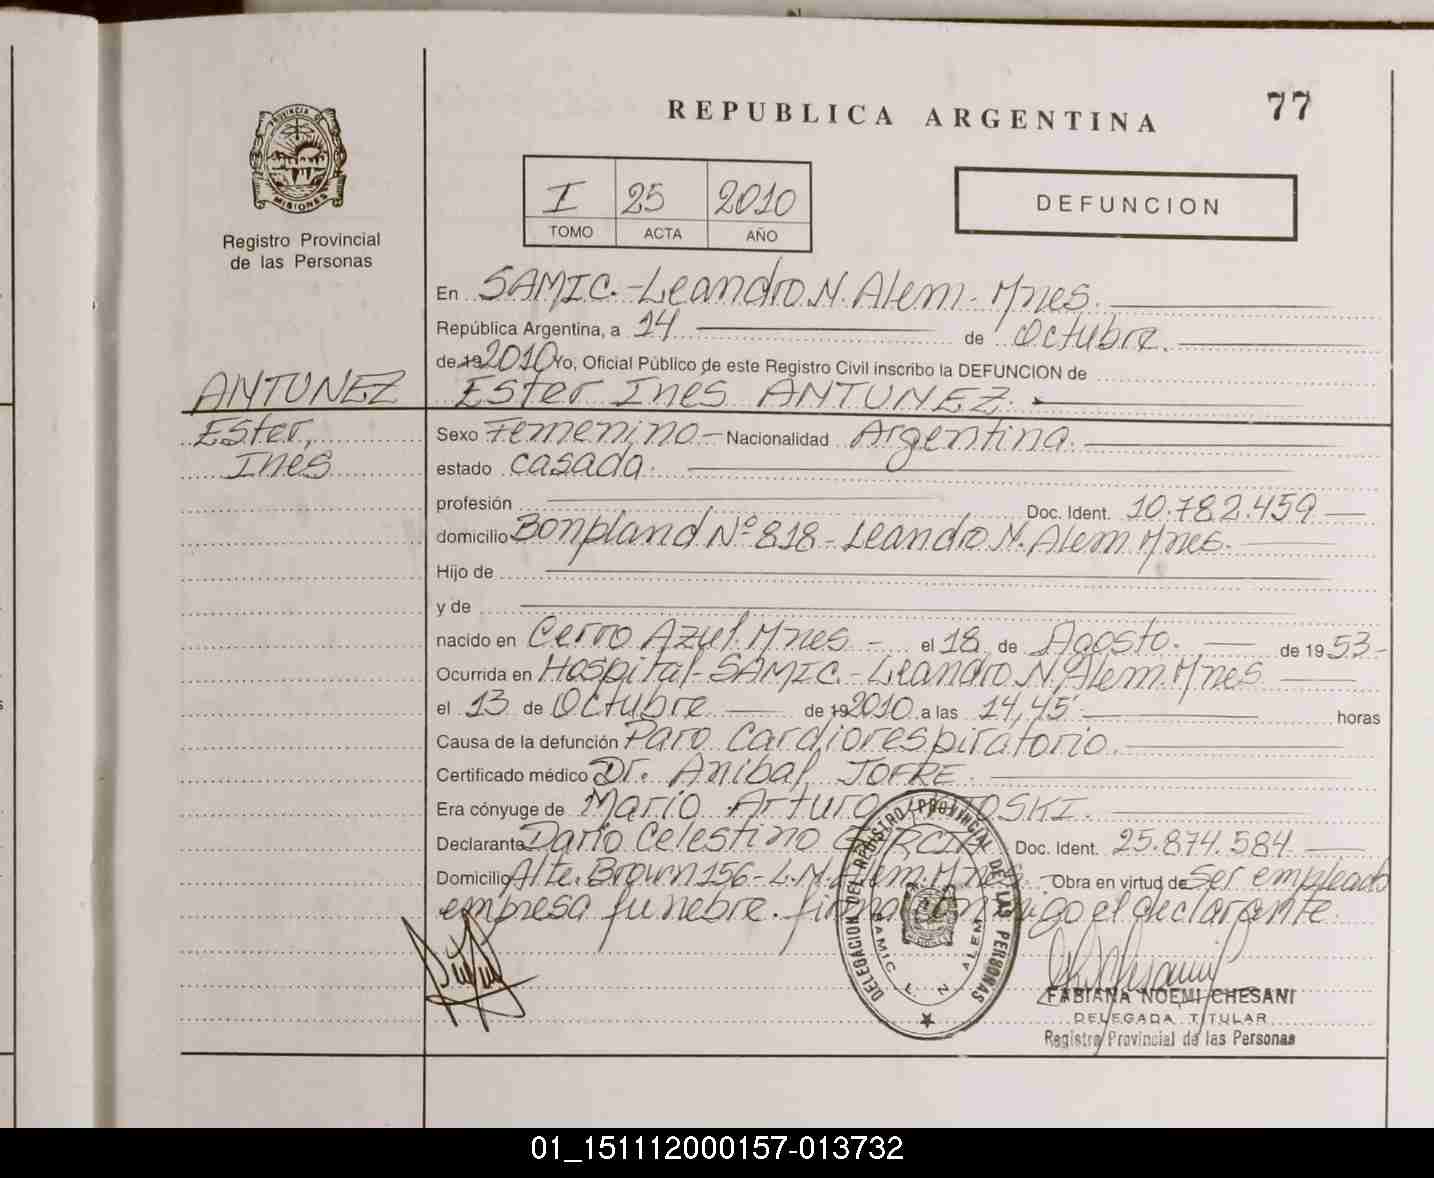 REPUBLICA ARGENTINA
77
PROVINCIA DE
MISIONES
Registro Provincial
de las Personas
I 25 2010
TOMO ACTA AÑO
DEFUNCION
En SAMIC.-Leandro N. Alem- Mnes.
República Argentina, a 14 de Octubre.
de 19 2010 Yo, Oficial Público de este Registro Civil inscribo la DEFUNCION de
Ester Ines ANTUNEZ.
ANTUNEZ
Ester,
Ines
Sexo Femenino- Nacionalidad Argentina.
estado casada.
profesión Doc. Ident. 10.782.459
domicilio Bonpland Nº 818- Leandro N. Alem Mnes.
Hijo de
y de
nacido en Cerro Azul. Mnes- el 18 de Agosto. de 1953-
Ocurrida en Hospital-SAMIC.-Leandro N. Alem. Mnes
el 13 de Octubre de 19 2010 a las 14,45' horas
Causa de la defunción Paro Cardiorespiratorio.
Certificado médico Dr. Anibal JOFRE.
Era cónyuge de Mario Arturo
Declarante Dario Celestino GARCIA Doc. Ident. 25.874.584
Domicilio Alte. Brown 156- L.N. Alem. Mnes. Obra en virtud de ser empleado
empresa funebre. firma conmigo el declarante
DELEGACION DEL REGISTRO PROVINCIAL DE LAS PERSONAS
SAMIC L. N. ALEM
FABIANA NOEMI CHESANI
DELEGADA TITULAR
Registro Provincial de las Personas
01_151112000157-013732